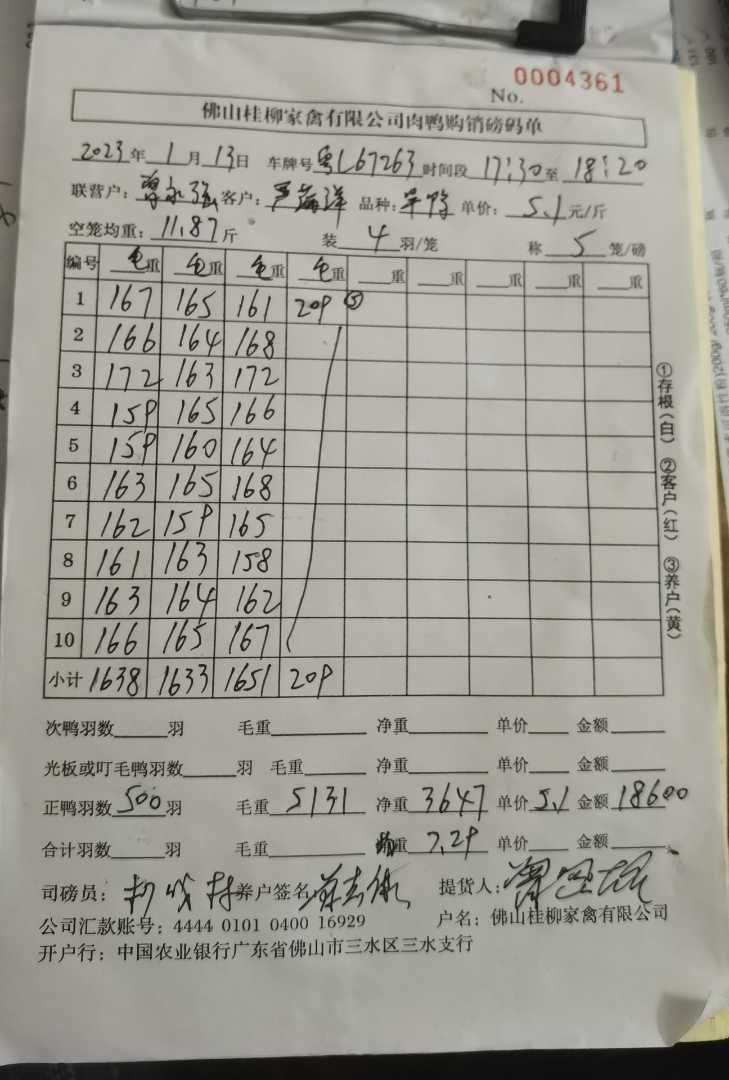 0004361
No.
佛山桂柳家禽有限公司肉鸭购销磅码单
2023年 1月13日 车牌号粤L67263 时间段 17:30至 18:20
联营户: 客户: 品种: 单价: 5.1元/斤
空笼均重: 11.87斤 装 4 羽/笼 称 5 笼/磅
编号 毛重 毛重 毛重 毛重 重 重 重 重 重
1 167 165 161 209 ⑤
2 166 164 168
3 172 163 172
4 159 165 166
5 159 160 164
6 163 165 168
7 162 159 165
8 161 163 158
9 163 164 162
10 166 165 167
小计 1638 1633 1651 209
①存根(白) ②客户(红) ③养户(黄)
次鸭羽数 羽 毛重 净重 单价 金额
光板或叮毛鸭羽数 羽 毛重 净重 单价 金额
正鸭羽数 500羽 毛重 5131 净重 3647 单价5.1 金额18600
合计羽数 羽 毛重 均重 7.29 单价 金额
司磅员: 养户签名 提货人:
公司汇款账号: 4444 0101 0400 16929 户名: 佛山桂柳家禽有限公司
开户行: 中国农业银行广东省佛山市三水区三水支行